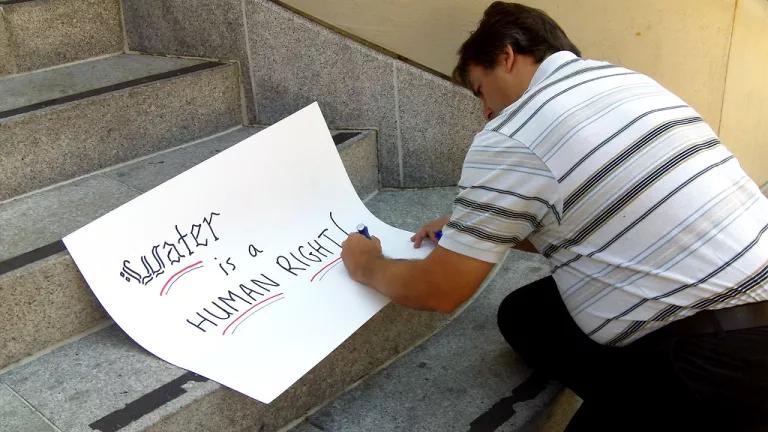 Water
is a
HUMAN RIGHT!